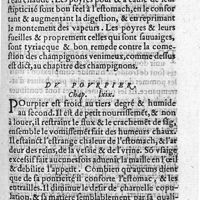 eau chaude. Les poyrs pour l'
fruict font bon reste à l'estomach, le confor
tant & augmentant la digestion, & en reprimant
le montement des vapeurs. Les poyrers & leurs
fueilles & proprement celles qui sont sauuages,
sont tyriacque & bon remede contre la come-
stion des champignons venimeux, comme dessus
est dit, au chapitre des champignons.
DV POVRPIER,
Chap. lxix.
POurpier est froid au tiers degré & humide
au second. Il est de petit nourrissemēt, & non
à louer, il restraint le flux & le crachemēt de sãg,
ensemble le vomissemēt fait des humeurs chaux.
Il estainct l'estrange chaleur de l'estomach, & l'ar
deur des reins, de la vesie & de l'vrine. So vsage
excessif fait aucunefois admoindrir la matiere de l'œil
& debilite l'appetit. Combien qu'aucuns dient que
de sa ponticité il conforte l'estomac, & les
entrailles. Il diminue le desir de charnelle copu-
lation, & la matiere semblablement par sa qua